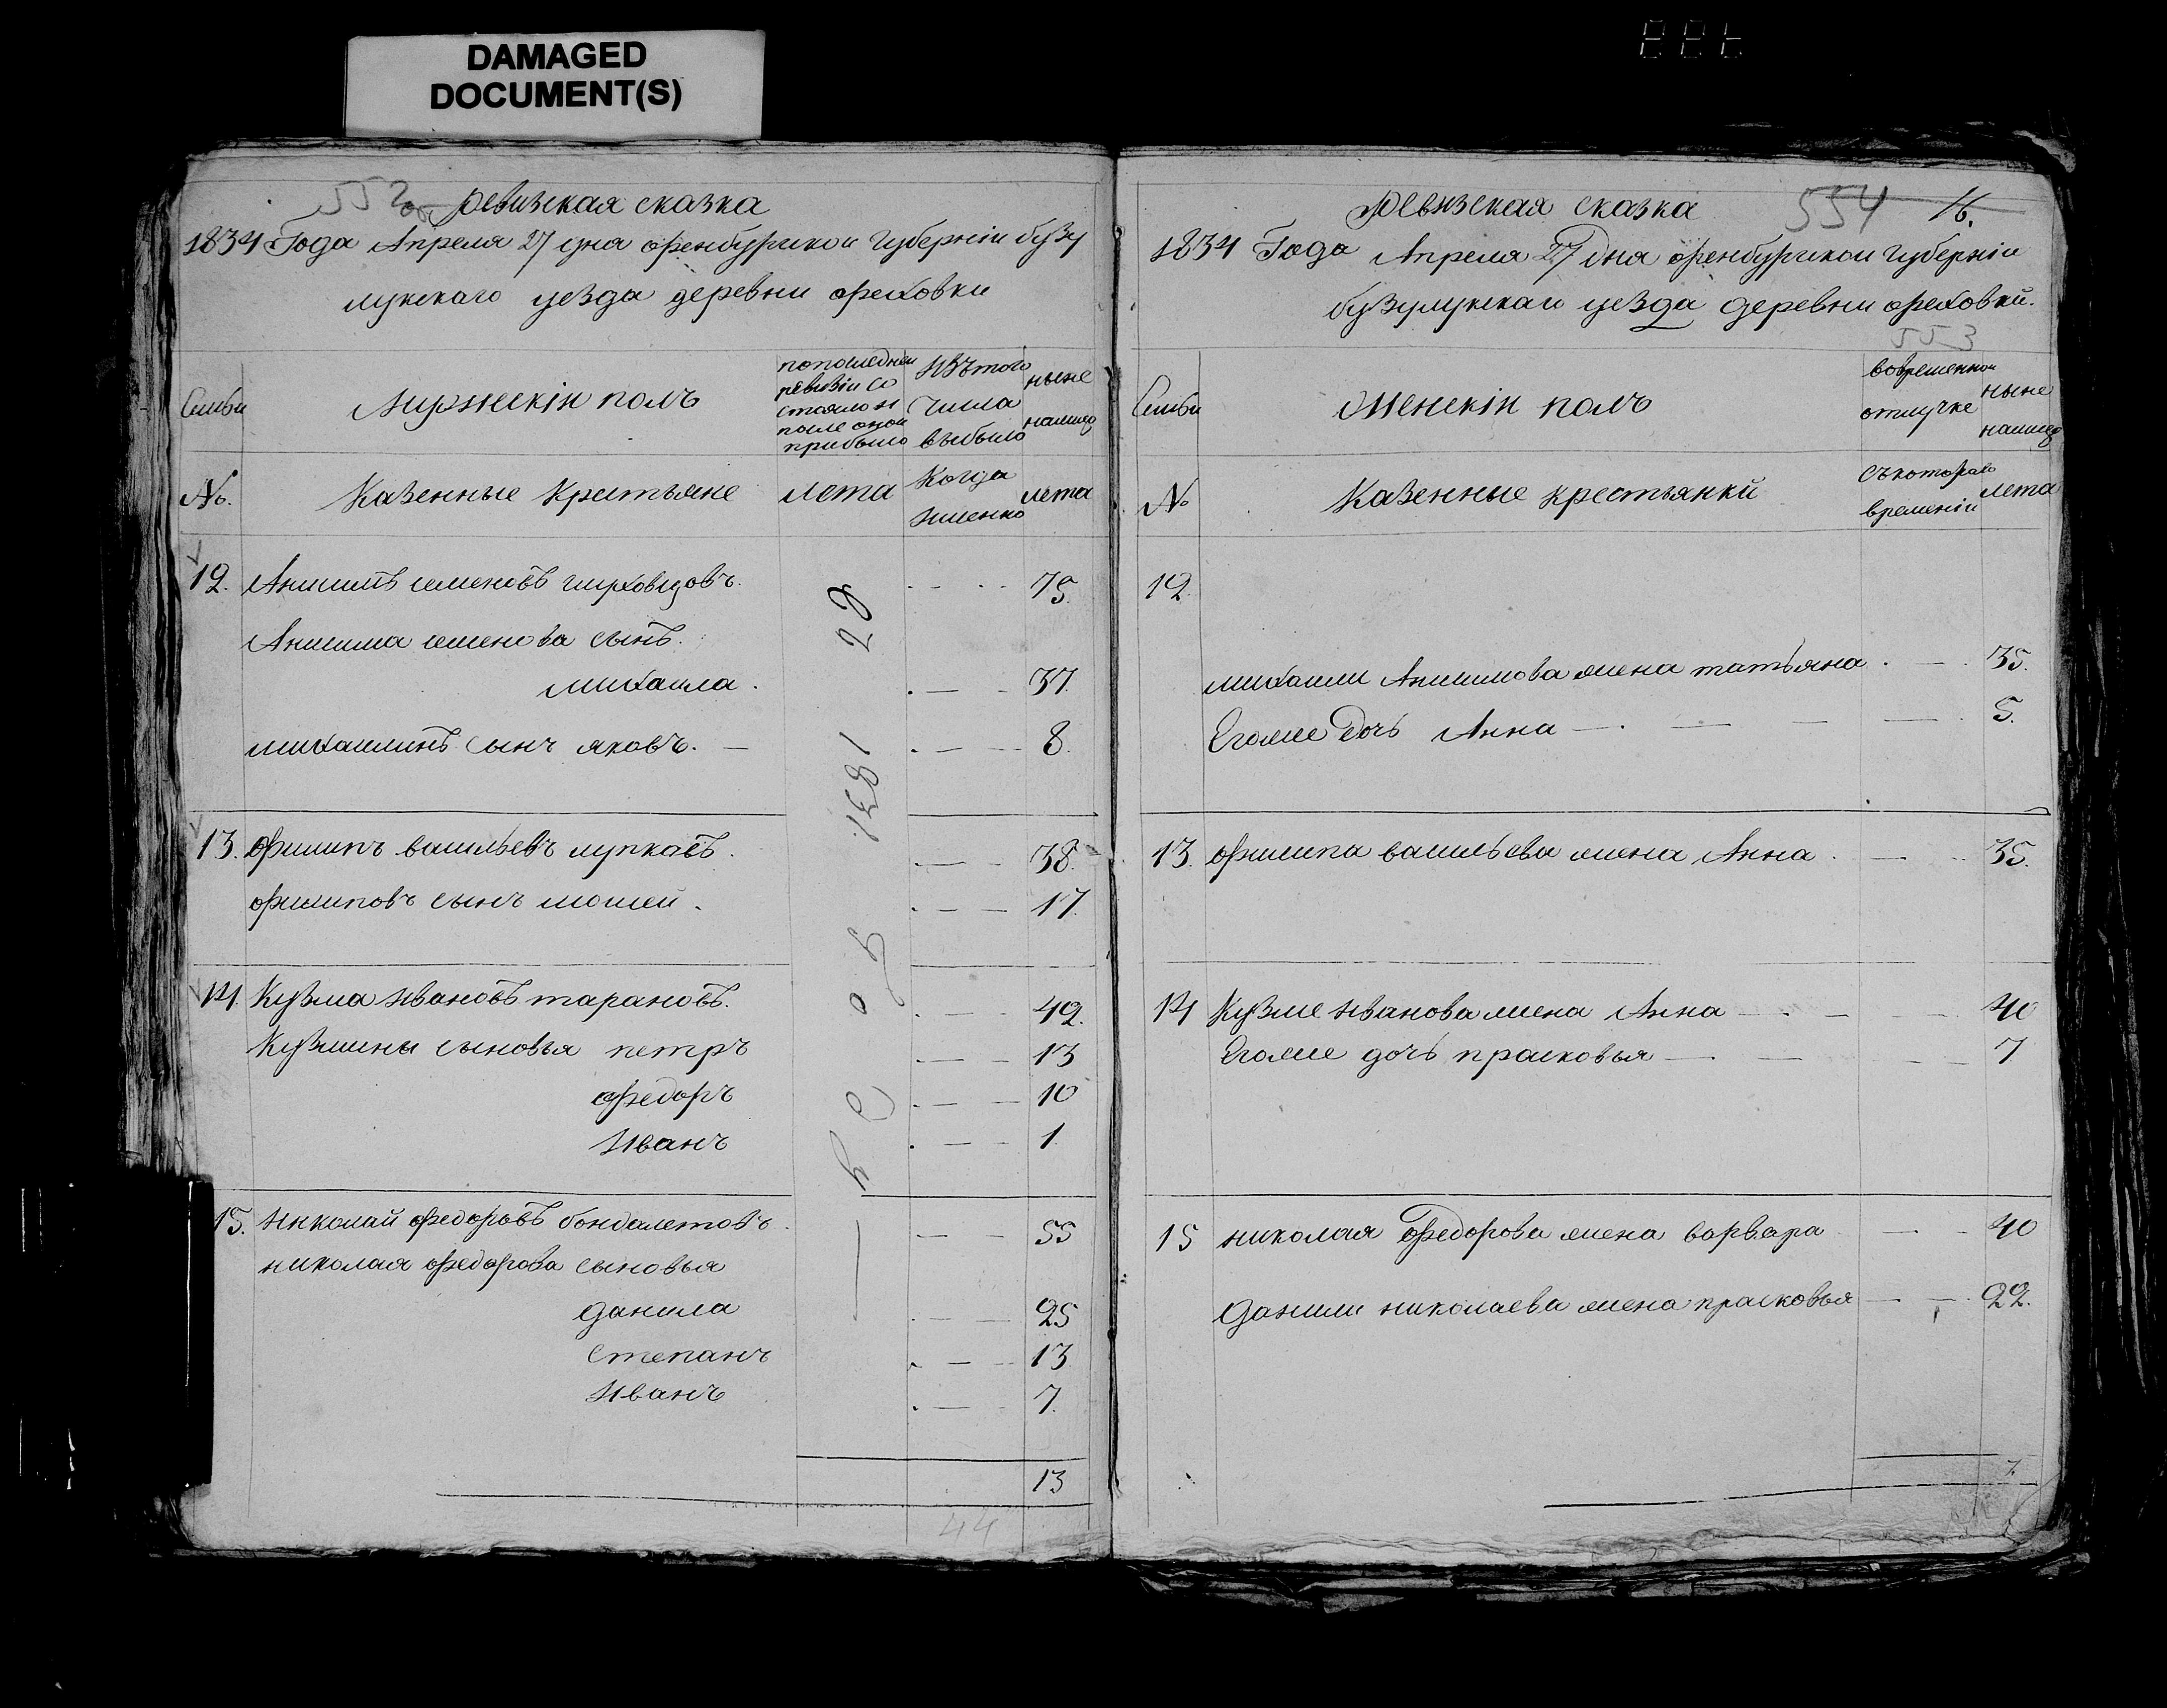 DAMAGED
DOCUMENT(S)
552 об ревизская сказка
1834 Года Апреля 27 дня оренбургской губерніи бузу
лукскаго уезда деревни ореховки
Семьи
Мужескій полъ
попоследней
ревизіи со
стояло и
после оной
прибыло
Изътого
числа
выбыло
ныне
налицо
№.
Казенные Крестьяне
лета
Когда
именно
лета
12. Анисимъ семеновъ 75.
Анисима семенова сынъ.
михаила. 37.
михаилинъ сынъ яковъ. 8.
13. филипъ васильевъ лупкавъ. 38.
филиповъ сынъ мосей. 17.
14. Кузма Ивановъ тарановъ. 42.
Кузмины сыновья петръ 13
федоръ 10
Иванъ 1
15. николай федоровъ бондалетовъ. 55
николая федорова сыновья
данила 25
степанъ 13
Иванъ 7.
13
44
1831 года
28
ревизская сказка 554 16.
1834 Года Апреля 27 дня оренбургской губерніи
бузулукскаго уезда деревни ореховки.
553
Семьи
Женскій полъ
вовременной
отлучке
ныне
налицо
№
Казенные крестьянки
съкотораго
времени
лета
12
михаили Анисимова жена татьяна 35.
Егоже дочь Анна 5.
13. филипа васильева жена Анна 35.
14 Кузме Иванова жена Анна 40
Егоже дочь прасковья 7
15 николая Федорова жена варвара 40
данили николаева жена прасковья 22.
7.